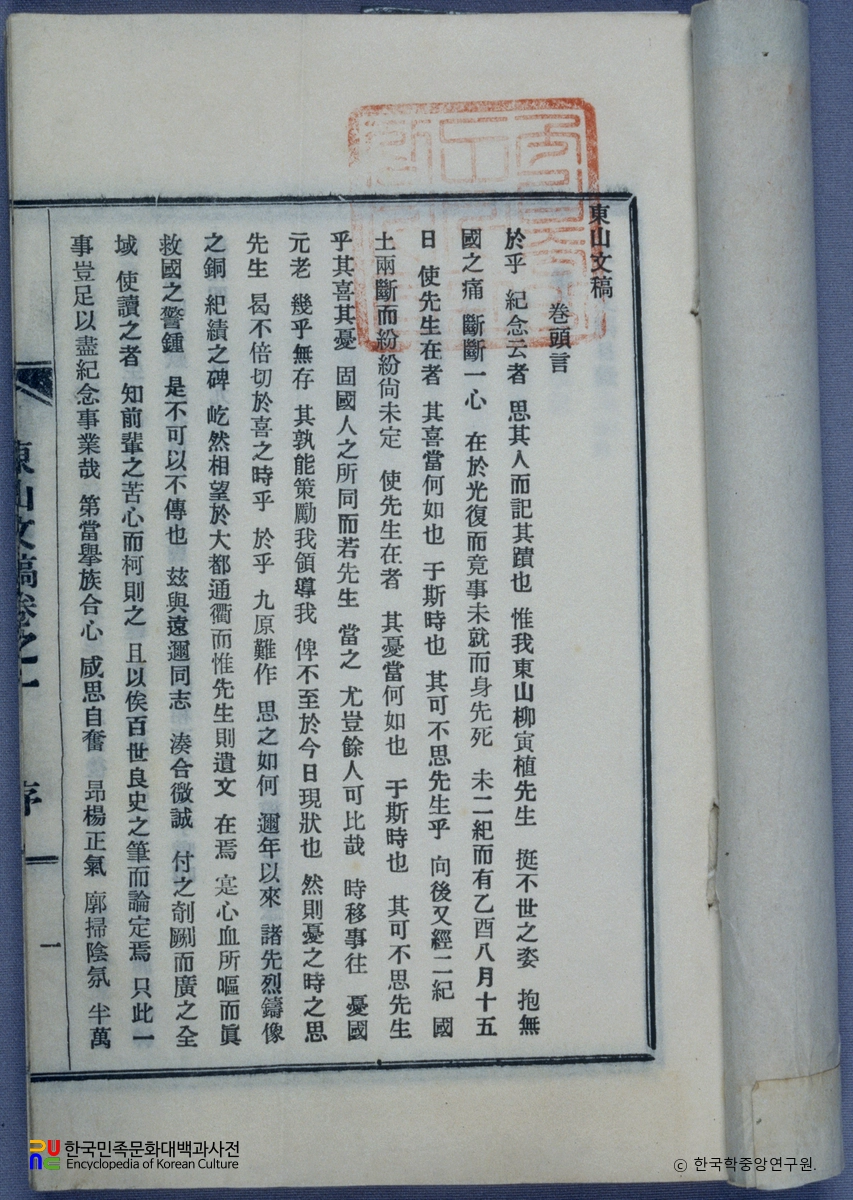 東山文稿
卷頭言
於乎 紀念云者 思其人而記其蹟也 惟我東山柳寅植先生 挺不世之姿 抱無
國之痛 斷斷一心 在於光復而竟事未就而身先死 未二紀而有乙酉八月十五
日 使先生在者 其喜當何如也 于斯時也 其可不思先生乎 向後又經二紀 國
土兩斷而紛紛尙未定 使先生在者 其憂當何如也 于斯時也 其可不思先生
乎其喜其憂 固國人之所同而若先生 當之 尤豈餘人可比哉 時移事往 憂國
元老 幾乎無存 其孰能策勵我領導我 俾不至於今日現狀也 然則憂之時之思
先生 曷不倍切於喜之時乎 於乎 九原難作 思之如何 邇年以來 諸先烈鑄像
之銅 紀績之碑 屹然相望於大都通衢而惟先生則遺文 在焉 寔心血所嘔而眞
救國之警鍾 是不可以不傳也 玆與遠邇同志 湊合微誠 付之剞劂而廣之全
域 使讀之者 知前輩之苦心而柯則之 且以俟百世良史之筆而論定焉 只此一
事豈足以盡紀念事業哉 第當擧族合心 咸思自奮 昂楊正氣 廓掃陰氛 半萬
東山文稿卷之一 序 一
한국민족문화대백과사전
Encyclopedia of Korean Culture
ⓒ 한국학중앙연구원.